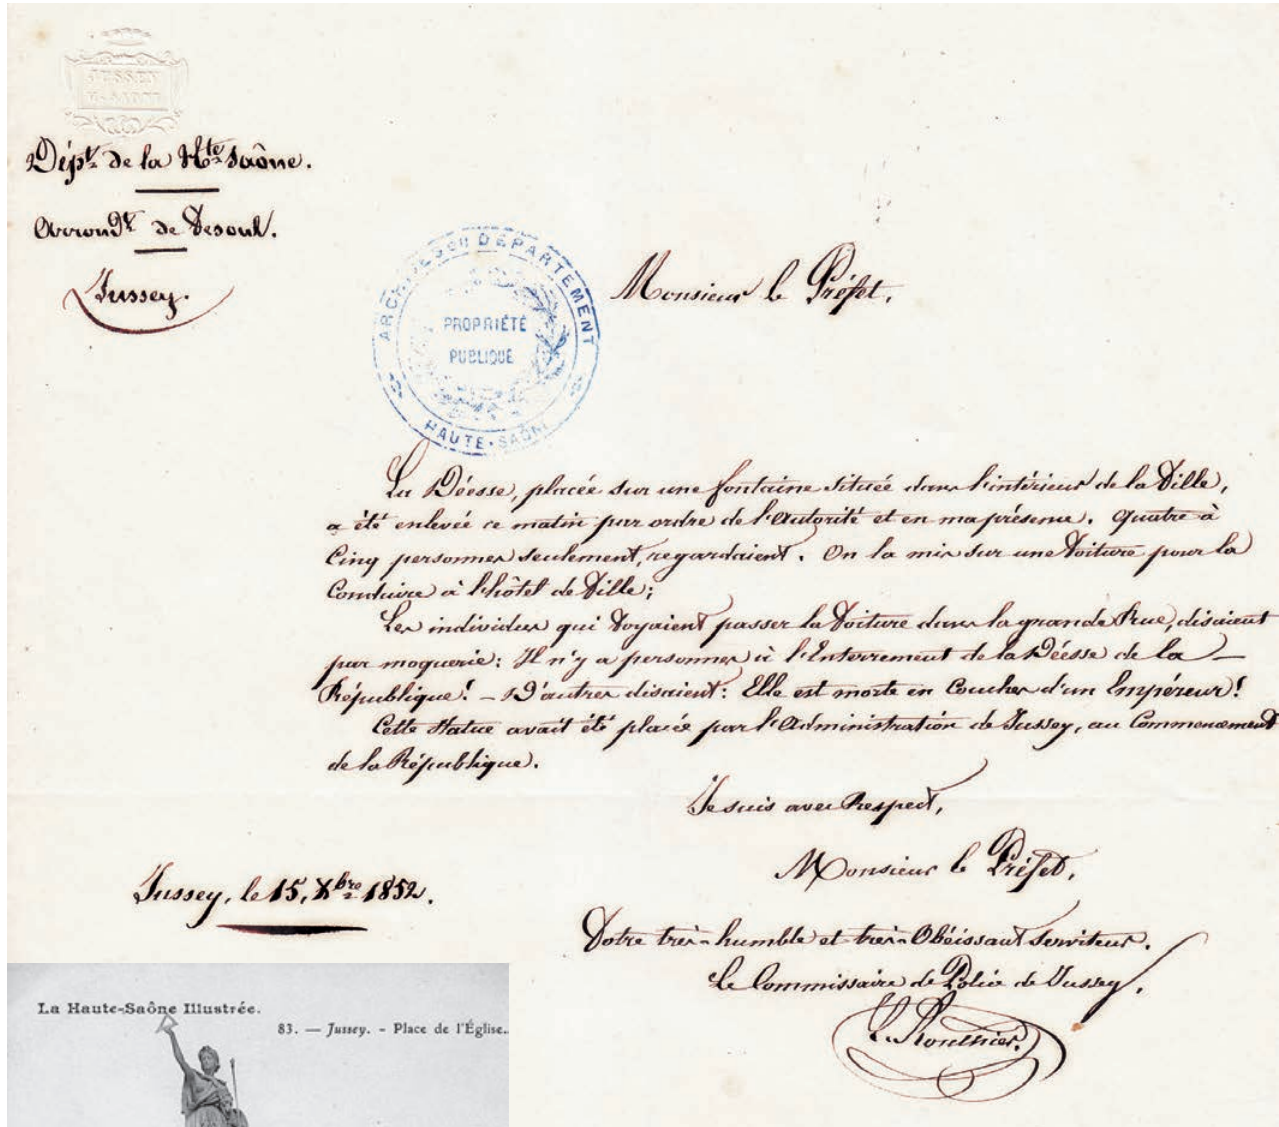 JUSSEY
Hte SAONE
Dépt. de la Hte Saône.
Arrondt. de Vesoul.
Jussey.
ARCHIVES DU DÉPARTEMENT
PROPRIÉTÉ
PUBLIQUE
HAUTE-SAÔNE
Monsieur le Préfet,
La Déesse, placée sur une fontaine située dans l'intérieur de la Ville,
a été enlevée ce matin par ordre de l'Autorité et en ma présence. Quatre à
Cinq personnes seulement, regardaient. On la mis sur une Voiture pour la
Conduire à l'hôtel de Ville;
Les individus qui Voyaient passer la Voiture dans la grande Rue, disaient
par moquerie: Il n'y a personnes à l'Enterrement de la Déesse de la —
République! — D'autres disaient: Elle est morte en Couches d'un Empéreur!
Cette Statue avait été placée par l'Administration de Jussey, au Commencement
de la République.
Je suis avec Respect,
Monsieur le Préfet,
Jussey, le 15, Xbre 1852.
Votre très-humble et très-Obéissant Serviteur.
Le Commissaire de Police de Jussey,
La Haute-Saône Illustrée.
83. — Jussey. - Place de l'Église.